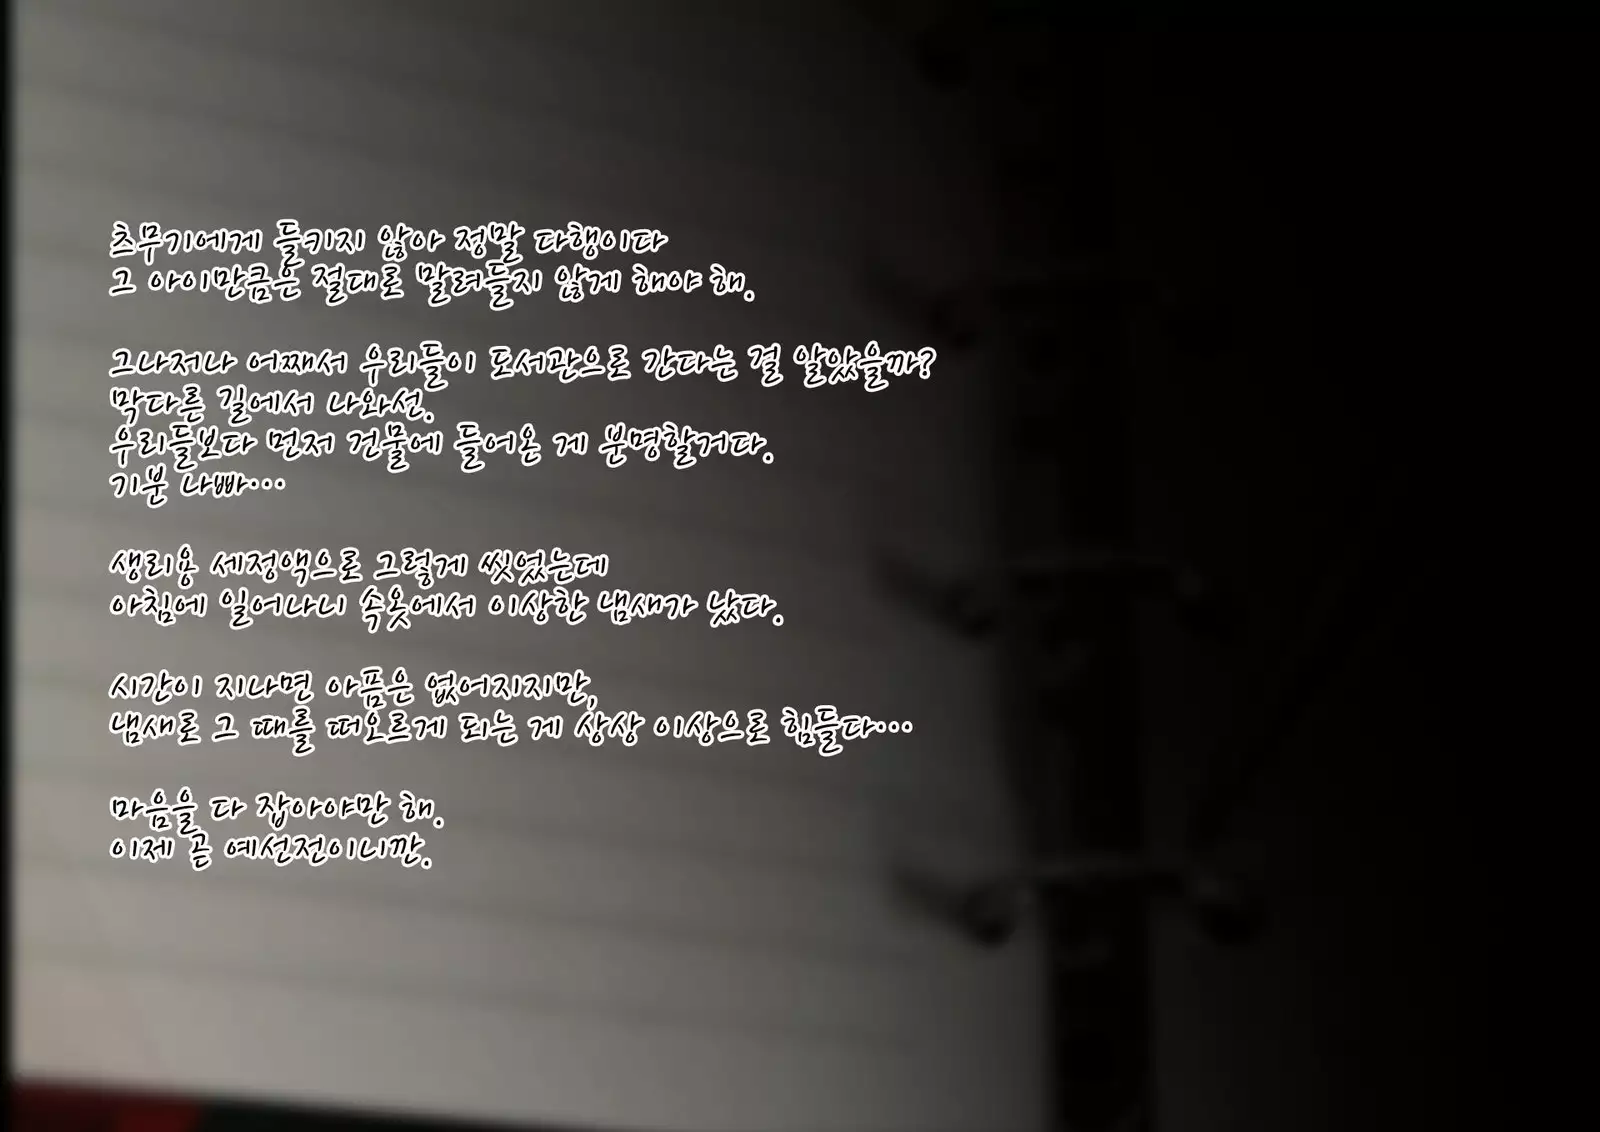 츠무기에게 들키지 않아 정말 다행이다
그 아이만큼은 절대로 말려들지 않게 해야 해.
그나저나 어째서 우리들이 도서관으로 간다는 걸 알았을까?
막다른 길에서 나와선.
우리들보다 먼저 건물에 들어온 게 분명할거다.
기분 나빠…
생리용 세정액으로 그렇게 씻었는데
아침에 일어나니 속옷에서 이상한 냄새가 났다.
시간이 지나면 아픔은 없어지지만,
냄새로 그 때를 떠오르게 되는 게 상상 이상으로 힘들다…
마음을 다 잡아야만 해.
이제 곧 예선전이니깐.